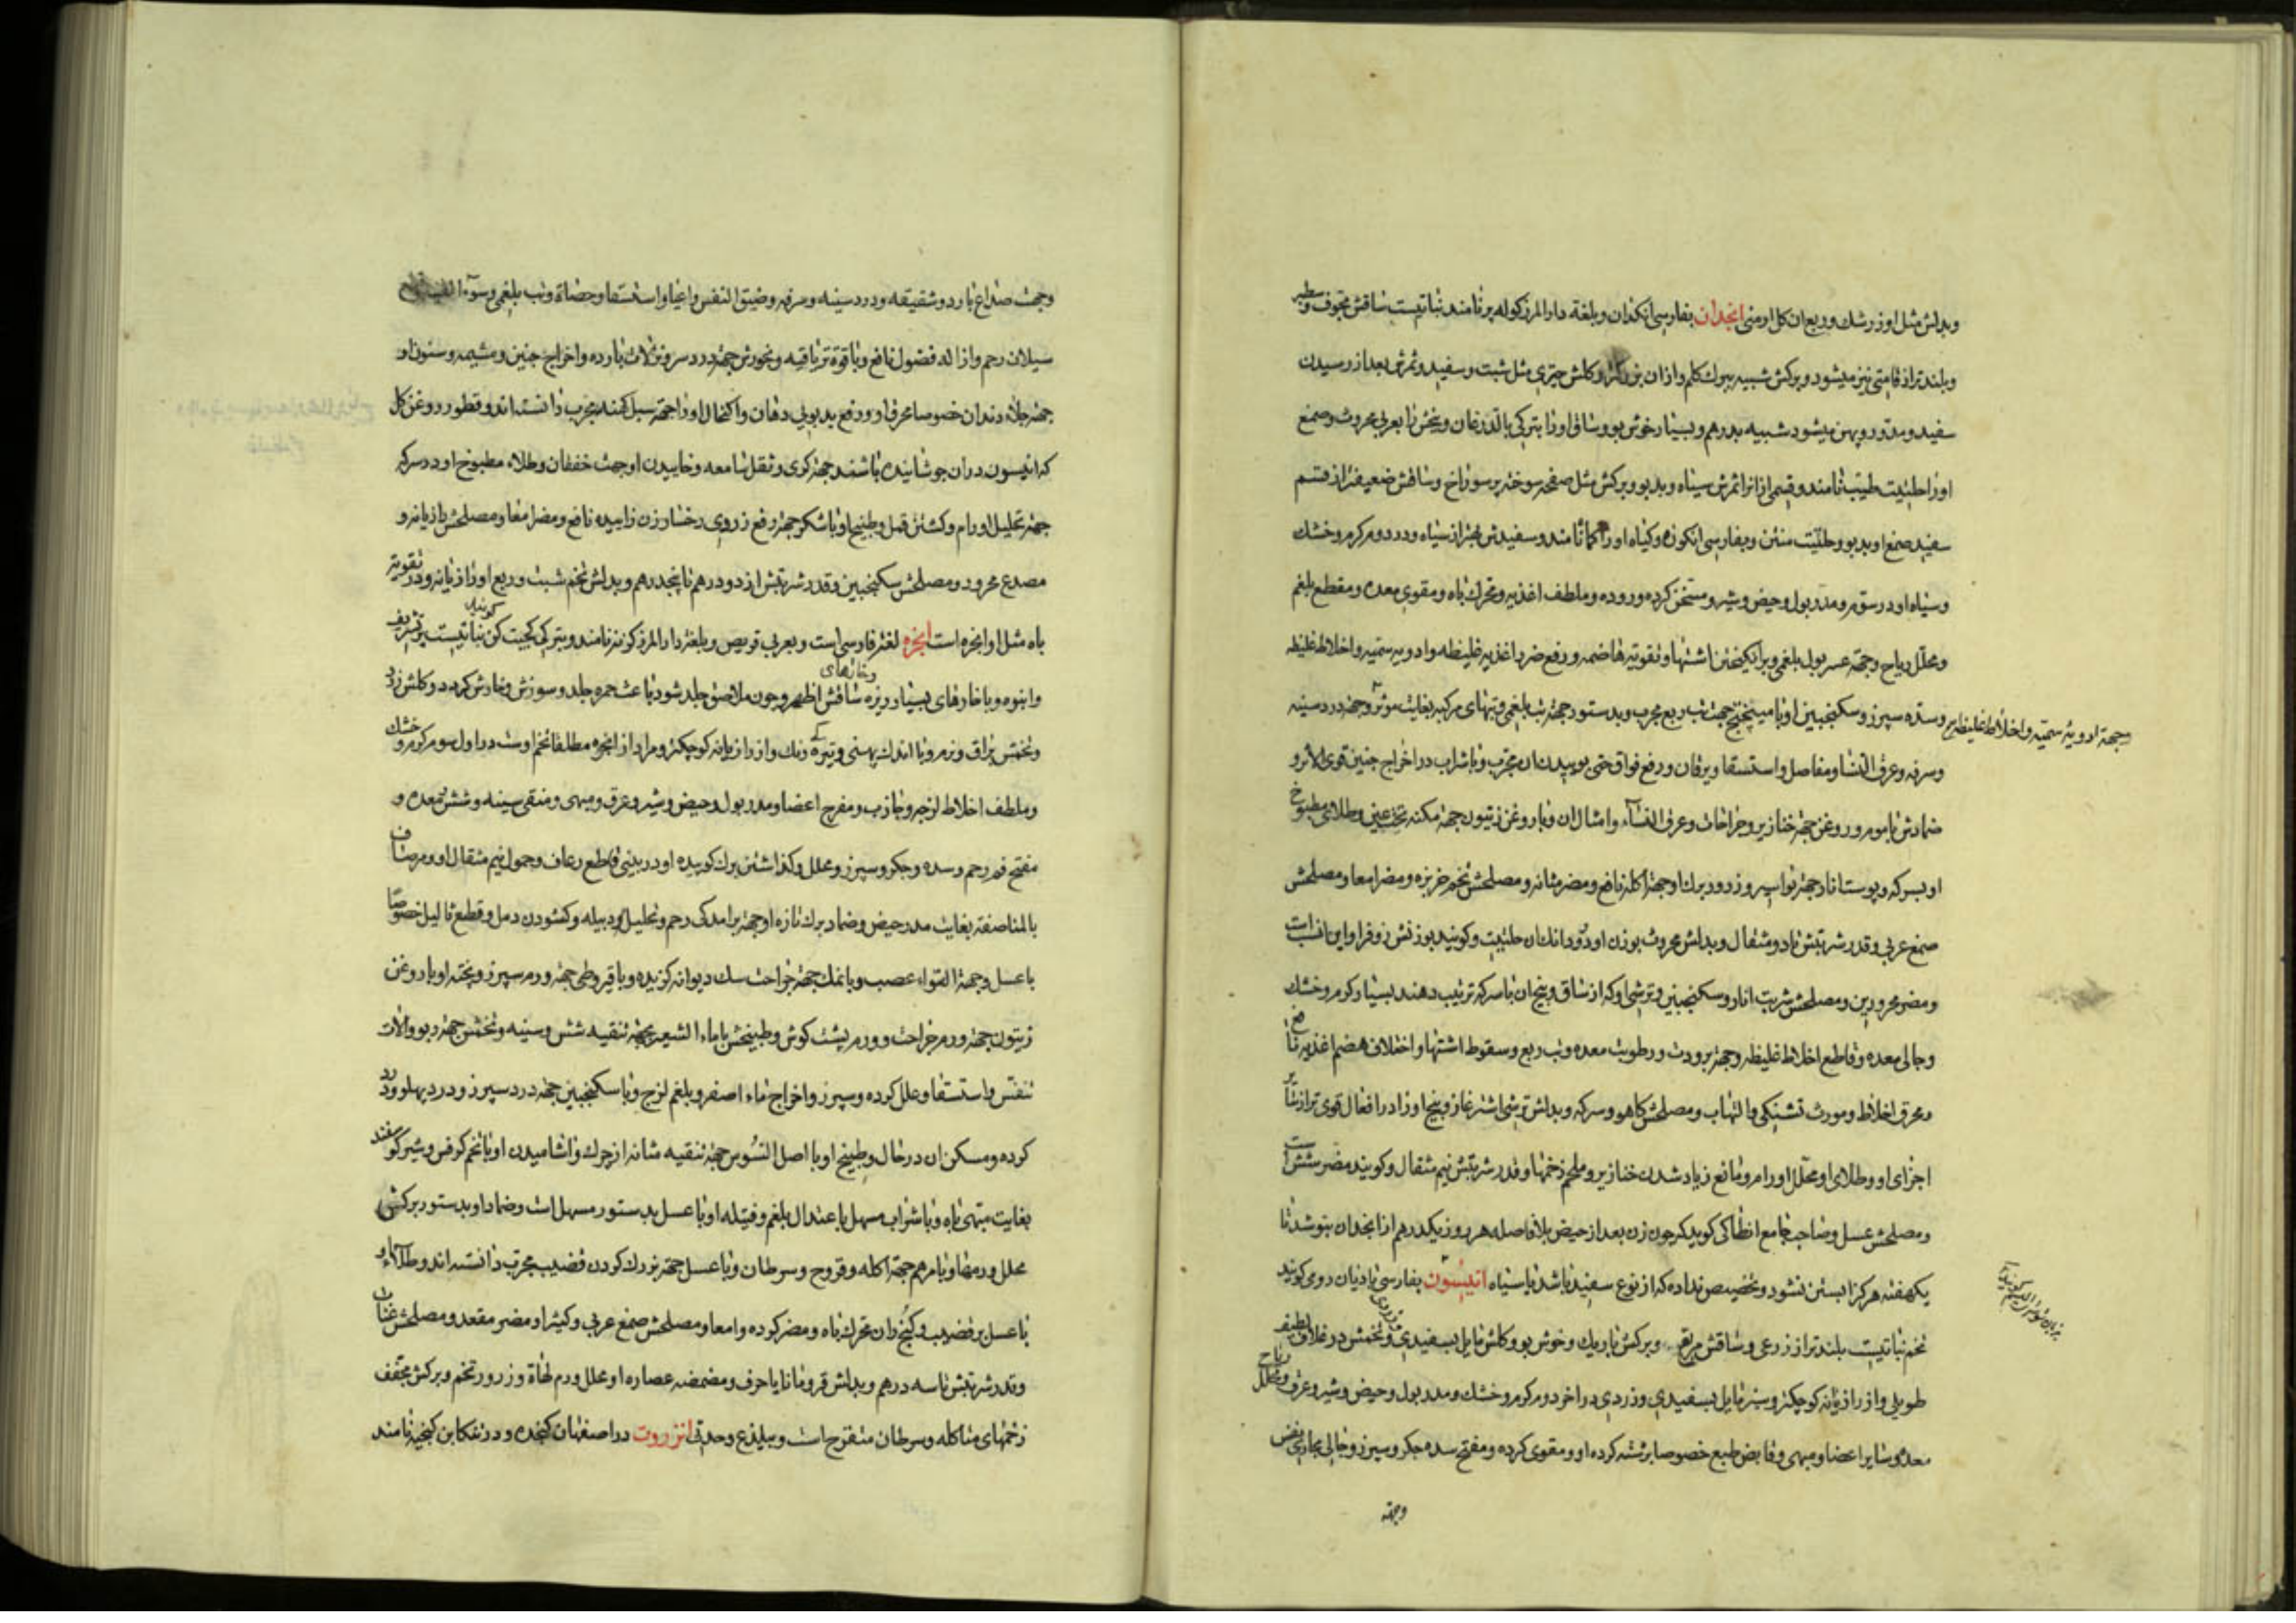 وبدلش مثل او زرشك وربع ان كل ارمنی انجدان بفارسی انكدان وبلغة دار المرز كوله پر نامند نباتیست ساقش مجوف وسطبر
وبلندتر از قامتی نیز میشود وبركش شبیه ببرك كلم وازان بزركتر وكلش چتری مثل شبت وسفید وثمرش بعد از رسیدن
سفید ومدور وپهن میشود شبیه بدرهم وبسیار خوش بو وساق اورا بتركی بالدرغان وبیخش را بعربی محروث وصمغ
اورا حلتیت طیب نامند وقسمی ازانرا ثمرش سیاه وبدبو وبركش مثل صفحه سوخته پر سوراخ وساقش ضعیفتر از قسم
سفید صمغ او بدبو وحلتیت منتن وبفارسی انكوزه وكیاه اورا كما نامند وسفیدش بهتر از سیاه ودر دوم كرم وخشك
وسیاه او در سوم ومدر بول وحیض وشیر ومسخن كرده وروده وملطف اغذیه ومحرك باه ومقوی معده ومقطع بلغم
ومحلل ریاح وجهة عسر بول بلغمی وبرانكیختن اشتها وتقویة هاضمه ورفع ضرر اغذیه غلیظه وادویه سمیه واخلاط غلیظه
وجهة ادویهٔ سمیه واخلاط غلیظه
وسده سپرز وسكنجبین او با میپختج جهت تب ربع مجرب وبدستور جهة تب بلغمی وتبهای مركبه بغایت موثر وجهة درد سینه
وسرفه وعرق النسا ومفاصل واستسقا ویرقان ورفع فواق حتی بوییدن ان مجرب وبا شراب در اخراج جنین قوی الاثر و
ضمادش با موم وروغن جهة خنازیر وجراحات وعرق النسآء وامثال ان وبا روغن زیتون جهة كمنه تحت عین وطلای مطبوخ
او بسركه وپوست انار جهة بواسیر وزرور برك او جهة اكله نافع ومضر مثانه ومصلحش تخم خربزه ومضر امعا ومصلحش
صمغ عربی وقدر شربتش تا دو مثقال وبدلش محروث بوزن او ودو دانك ان حلتیت وكویند بوزنش زوفرا واین انسب است
ومضر محرورین ومصلحش شربت انار وسكنجبین وترشی او كه از ساق وبیخ ان با سركه ترتیب دهند بسیار كرم وخشك
وجالی معده وقاطع اخلاط غلیظه وجهة برودت ورطوبت معده وتب ربع وسقوط اشتها واختلاف هضم اغذیه نافع
ومحرق اخلاط ومورث تشنكی والتهاب ومصلحش كاهو وسركه وبدلش ترشی اشترغاز وبیخ اورا در افعال قوی تر از سایر
اجزای او وطلای او محلل اورام ومانع زیاد شدن خنازیر وملحم زخمها وقدر شربتش نیم مثقال وكویند مضر شش است
ومصلحش عسل وصاحب جامع انطاكی كوید كه چون زن بعد از حیض بلا فاصله هر روز یكدرهم از انجدان بنوشد تا
یكهفته هركز ابستن نشود وتخصیص نداده كه از نوع سفید باشد یا سیاه انیسون بفارسی بادیان رومی كویند
تخم نباتیست بلندتر از ذرعی وساقش مربع وبركش باریك وخوش بو وكلش مایل بسفیدی وتخمش در غلاف لطیف
طویلی واز رازیانه كوچكتر وسبز مایل بسفیدی وزردی در اخر دوم كرم وخشك ومدر بول وحیض وشیر وعرق ومحلل ریاح
معده وسایر اعضا ومبهی وقابض طبع خصوصا برشته كرده او ومقوی كرده ومفتح سده جكر وسپرز وجالی مجاری نفس
وجهة
وجهت صداع بارد وشقیقه ودرد سینه وسرفه وضیق النفس واعیا واستسقا وحصاة وتب بلغمی وسوء القنیه
سیلان رحم وازاله فضول نافع وبا قوة تریاقیه وبخورش جهة درد سر ونزلات بارده واخراج جنین ومشیمه وسنون او
جهة جلاء دندان خصوصا محرق او ورفع بدبویی دهان واكتحال اورا جهة سبل كهنه مجرب دانسته اند وقطور روغن كل
كه انیسون دران جوشانیده باشند جهة كری وثقل سامعه وخاییدن او جهت خفقان وطلاء مطبوخ او در سركه
جهة تحلیل اورام وكشتن قمل وطبیخ او با شكر جهة رفع زردی رخسار زن زاییده نافع ومضر امعا ومصلحش رازیانه و
مصدع محرور ومصلحش سكنجبین وقدر شربتش از دو درهم تا پنجدرهم وبدلش تخم شبت وربع او رازیانه ودر تقویة
باه مثل او انجره است انجره لغة فارسی است وبعربی قریص وبلغة دار المرز كزنه نامند وبتركی كجیت كن كویند نباتیست پر تشریف
وانبوه وبا خارهای بسیار ریزه وخارهای ساقش اظهر وچون ملاصق جلد شود باعث حمره جلد وسوزش وخارش كردد وكلش زرد
وتخمش براق ونرم وبا اندك پهنی وتیره رنك واز رازیانه كوچكتر ومراد از انجره مطلقا تخم اوست در اول سوم كرم وخشك
وملطف اخلاط لزجه وجاذب ومفرح اعضا ومدر بول وحیض وشیر وعرق ومبهی ومنقی سینه وشش ومعده و
مفتح فم رحم وسده وجكر وسپرز ومحلل وكذاشتن برك كوبیده او در بینی قاطع رعاف وحمول نیم مثقال او ومر صاف
بالمناصفه بغایت مدر حیض وضماد برك تازه او جهة برامدكی رحم وتحلیل دبیله وكشودن دمل وقطع ثالیل خصوصا
با عسل وجهة التواء عصب وبا نمك جهة جراحت سك دیوانه كزیده وبا قیروطی جهة ورم سپرز وپخته او با روغن
زیتون جهة ورم جراحت وورم پشت كوش وطبیخش با ماء الشعیر جهة تنقیه شش وسینه وتخمش جهة ربو والات
تنفس واستسقا وعلل كرده وسپرز واخراج ماء اصفر وبلغم لزج وبا سكنجبین جهة درد سپرز ودرد پهلو ودرد
كرده ومسكن ان در حال وطبیخ او با اصل السوس جهة تنقیه مثانه از چرك واشامیدن او با تخم كرفس وشیر كوسفند
بغایت مبهی باه وبا شراب مسهل باعتدال بلغم وفتیله او با عسل بدستور مسهل است وضماد او بدستور بركش
محلل ورمها وبا مرهم جهة اكله وقروح وسرطان وبا عسل جهة بزرك كردن قضیب مجرب دانسته اند وطلآء او
با عسل بر قضیب وكنج ران محرك باه ومضر كرده وامعا ومصلحش صمغ عربی وكثیرا ومضر مقعد ومصلحش عناب
وقدر شربتش تا سه درهم وبدلش قردمانا یا حرف ومضمضه عصاره او محلل ورم لهاة وزرور تخم وبركش مجفف
زخمهای متاكله وسرطان متقرح است وبیلذع وحدتی انزروت در اصفهان كنجده ودر تنكابن كنجیده نامند